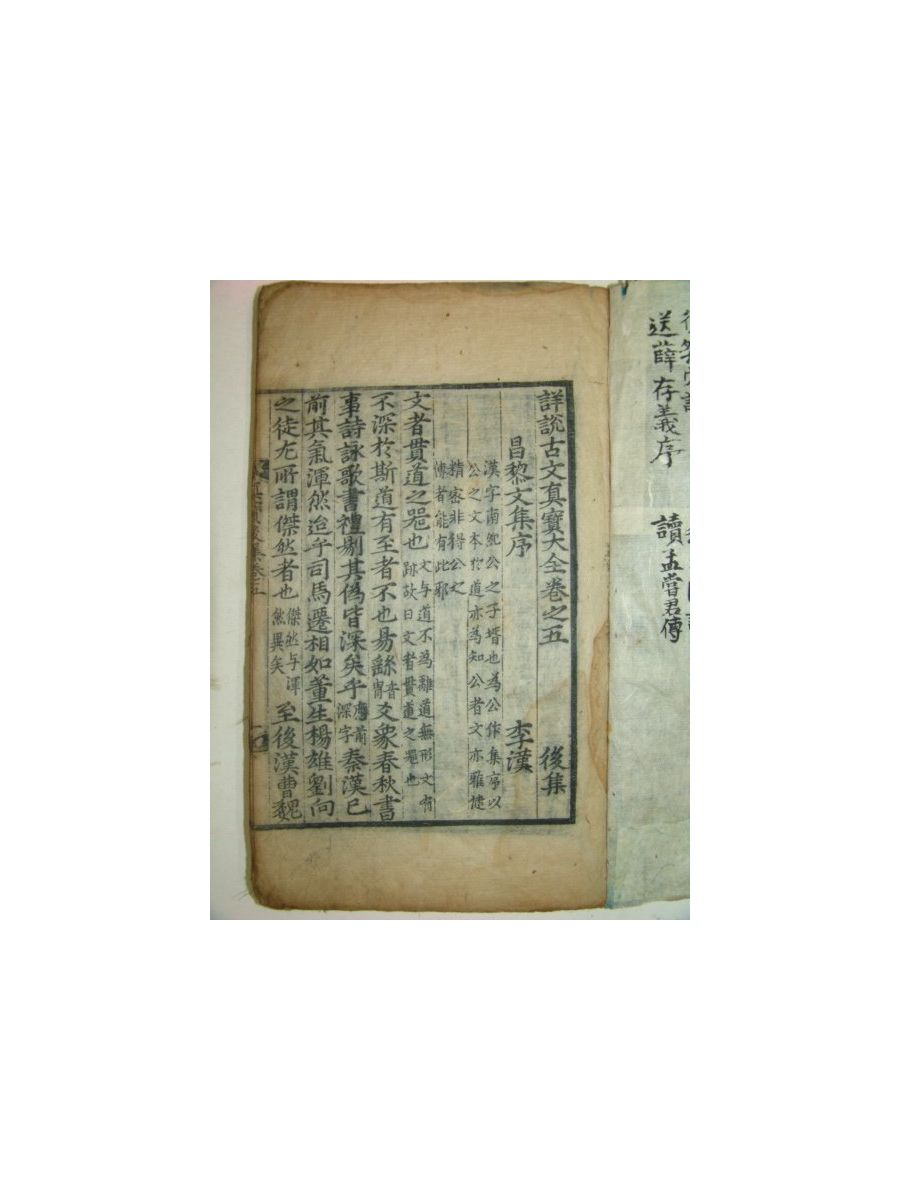 送薛存義序
讀孟嘗君傳
詳說古文真寶大全卷之五 後集
昌黎文集序 李漢
漢字南紀公之子壻也為公作集序以
公之文本於道亦為知公者文亦雅健
精密非得公之
傳者能有此邪
文者貫道之噐也文与道不為離道無形文有
跡故曰文者貫道之噐也
不深於斯道有至者不也易繇音
胄爻象春秋書
事詩詠歌書禮剔其偽皆深矣乎應前
深字秦漢已
前其氣渾然迨乎司馬遷相如董生楊雄劉向
之徒尤所謂傑然者也傑然与渾
然異矣至後漢曹魏